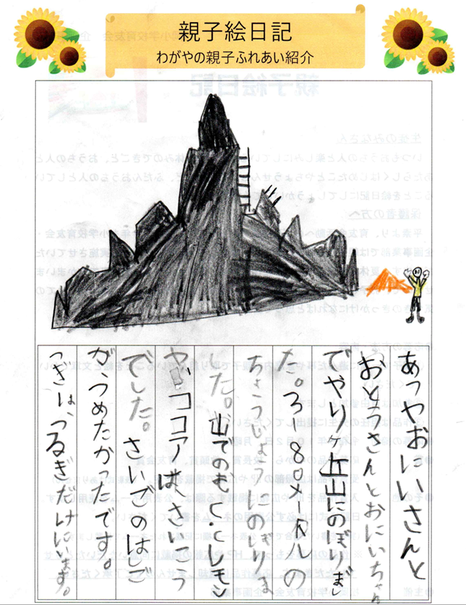 親子絵日記
わがやの親子ふれあい紹介
あつやおにいさんと
おとうさんとおにいちゃん
でやりヶ丘山にのぼりまし
た。3180メートルの
ちょうじょうにのぼりま
した。山でのむC.Cレモン
やココアは、さいこう
でした。さいごのはしご
がつめたかったです。
つぎは、つるぎだけにいきます。